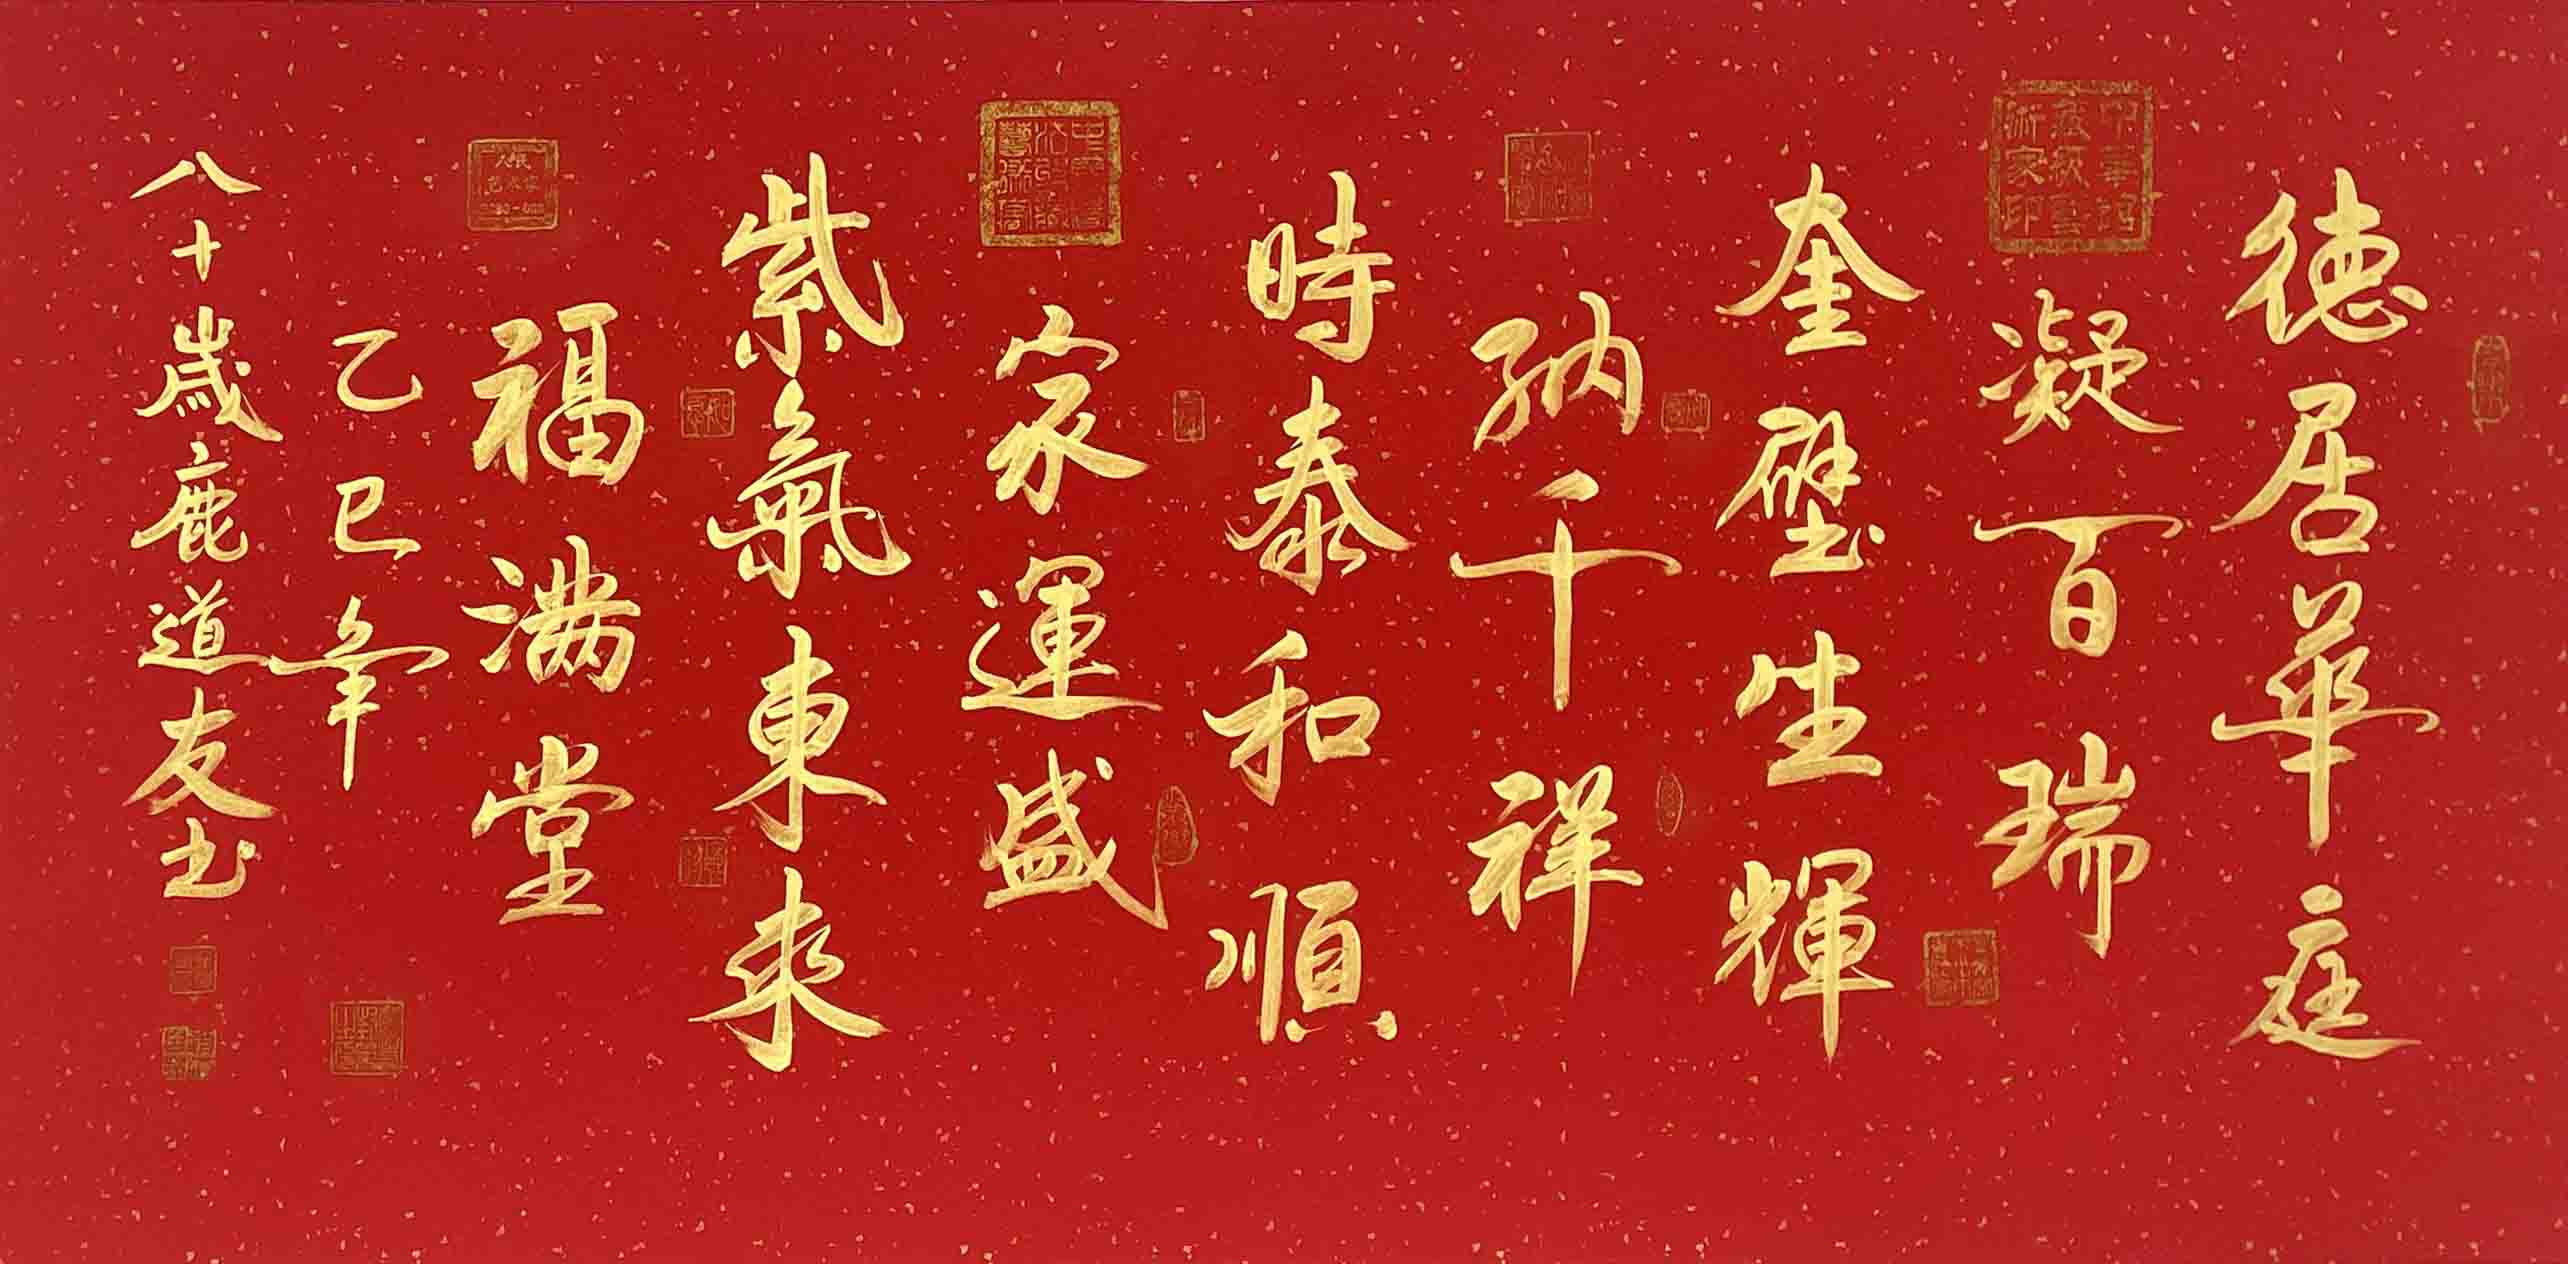 德居華庭
凝百瑞
奎壁生輝
納千祥
時泰和順
家運盛
紫氣東來
福满堂
乙巳年
八十歲鹿道友书